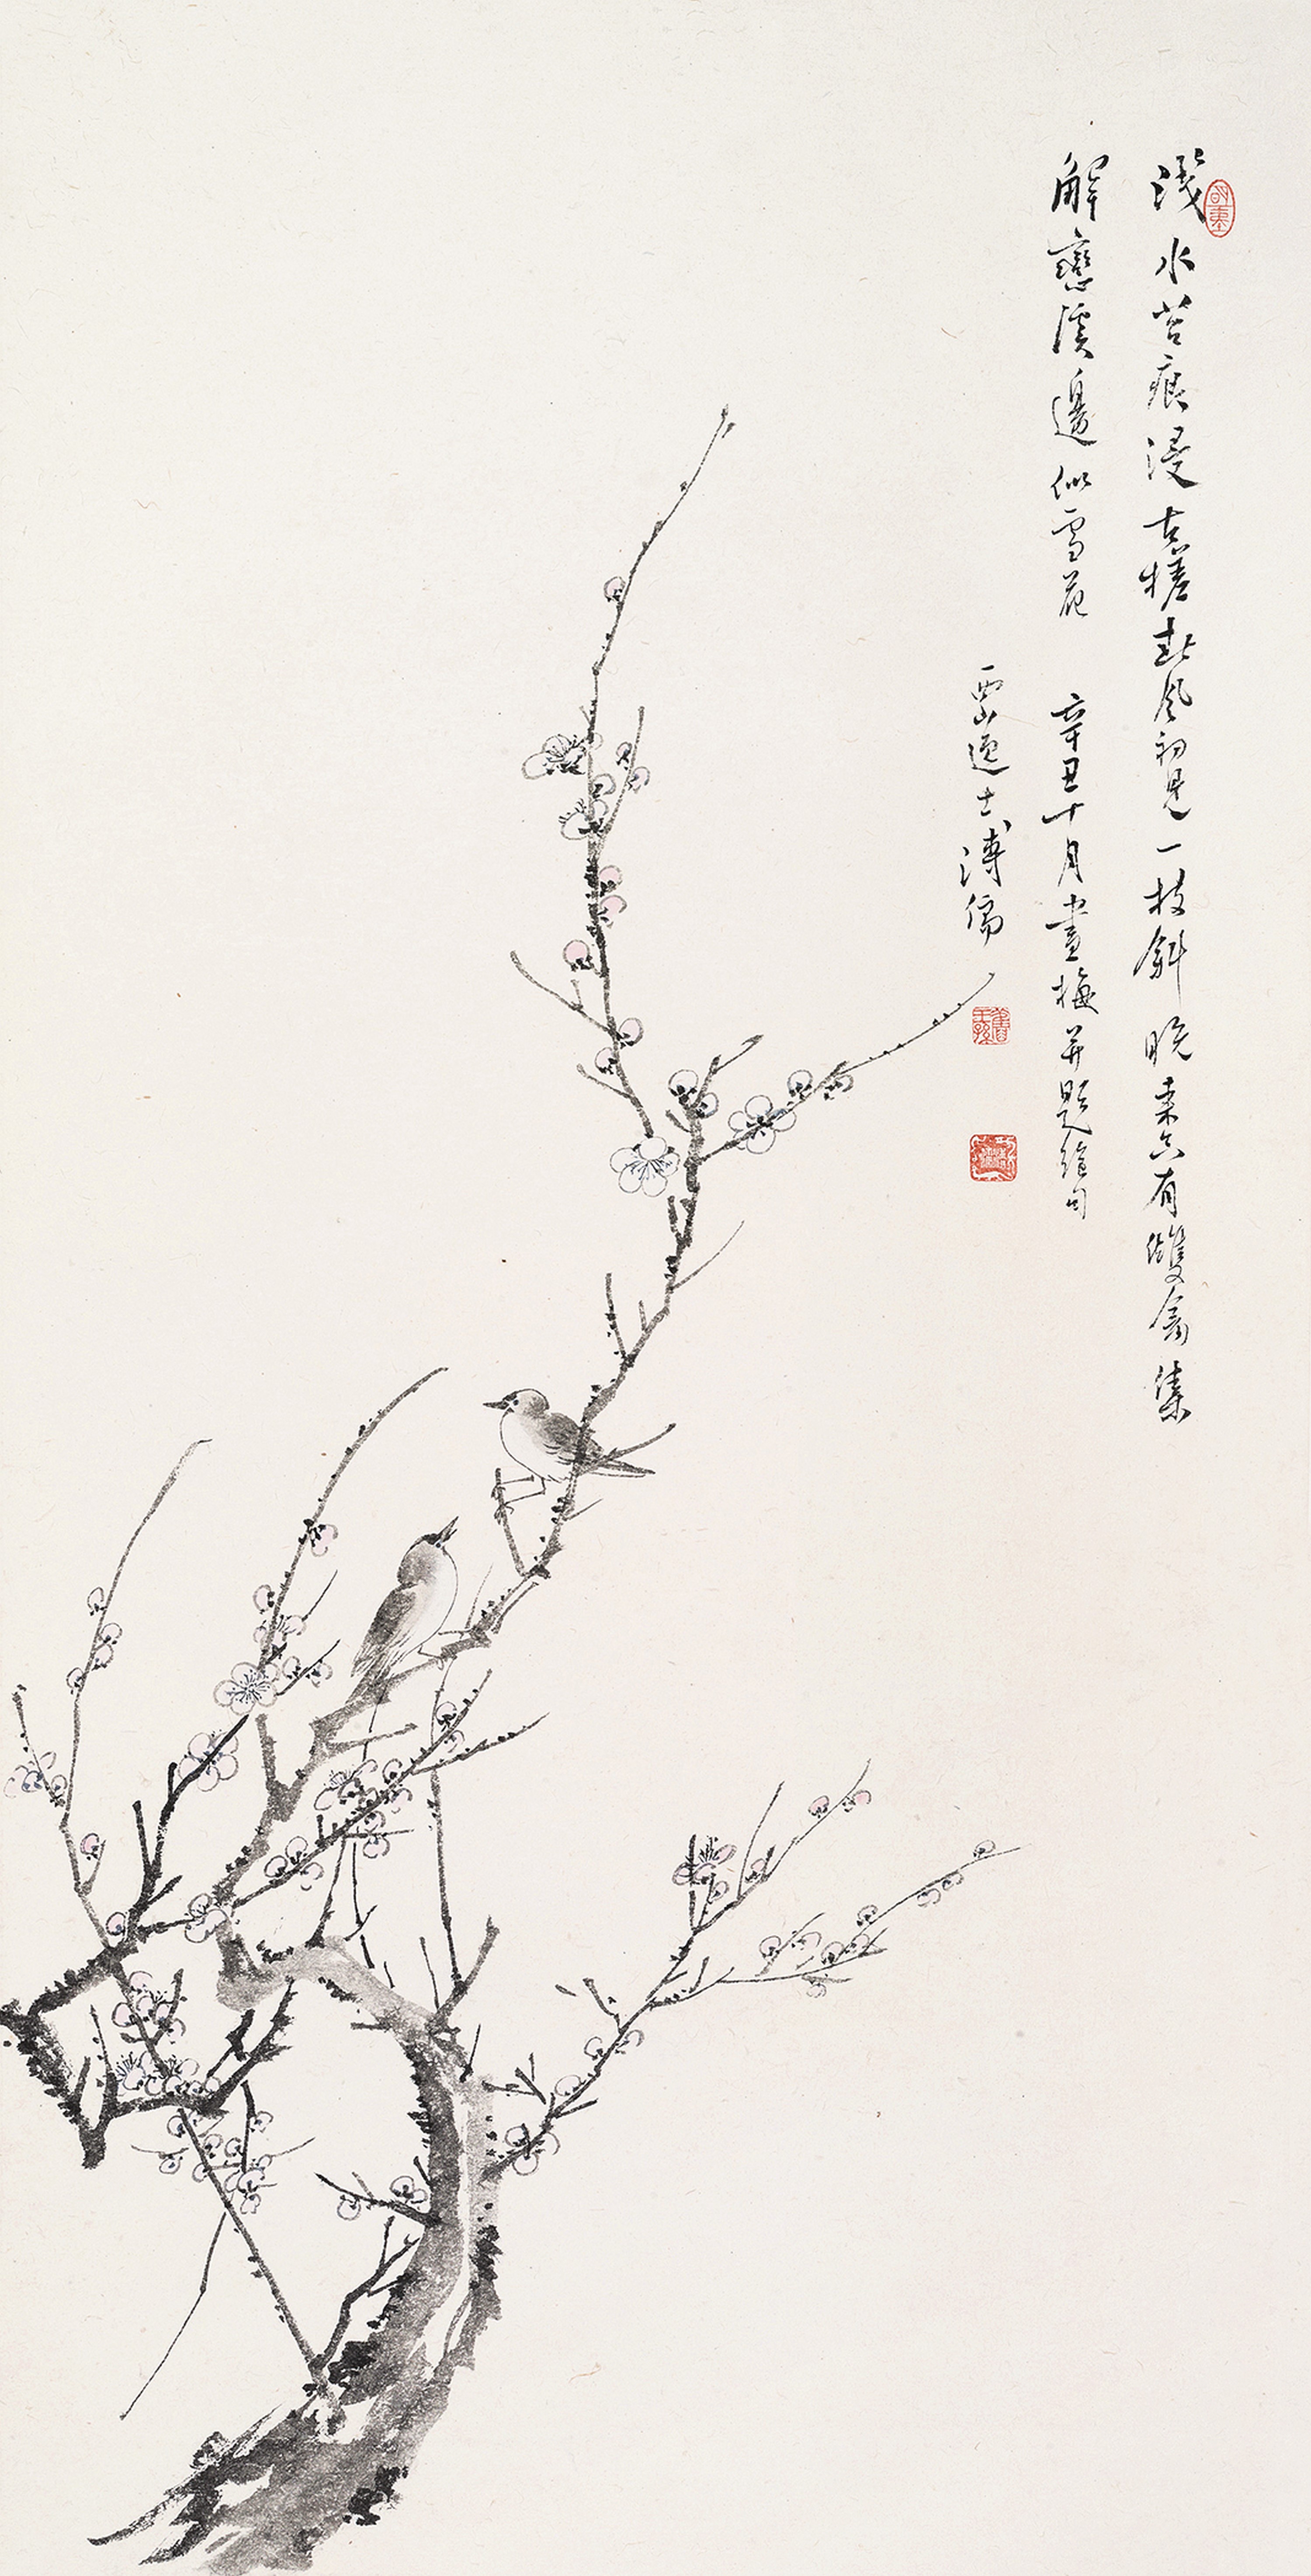 淺水苔痕浸古槎春風初見一枝斜晚來亦有雙禽集
解戀溪邊似雪花 辛丑十月畫梅并題絕句
西山逸士溥儒
舊王孫